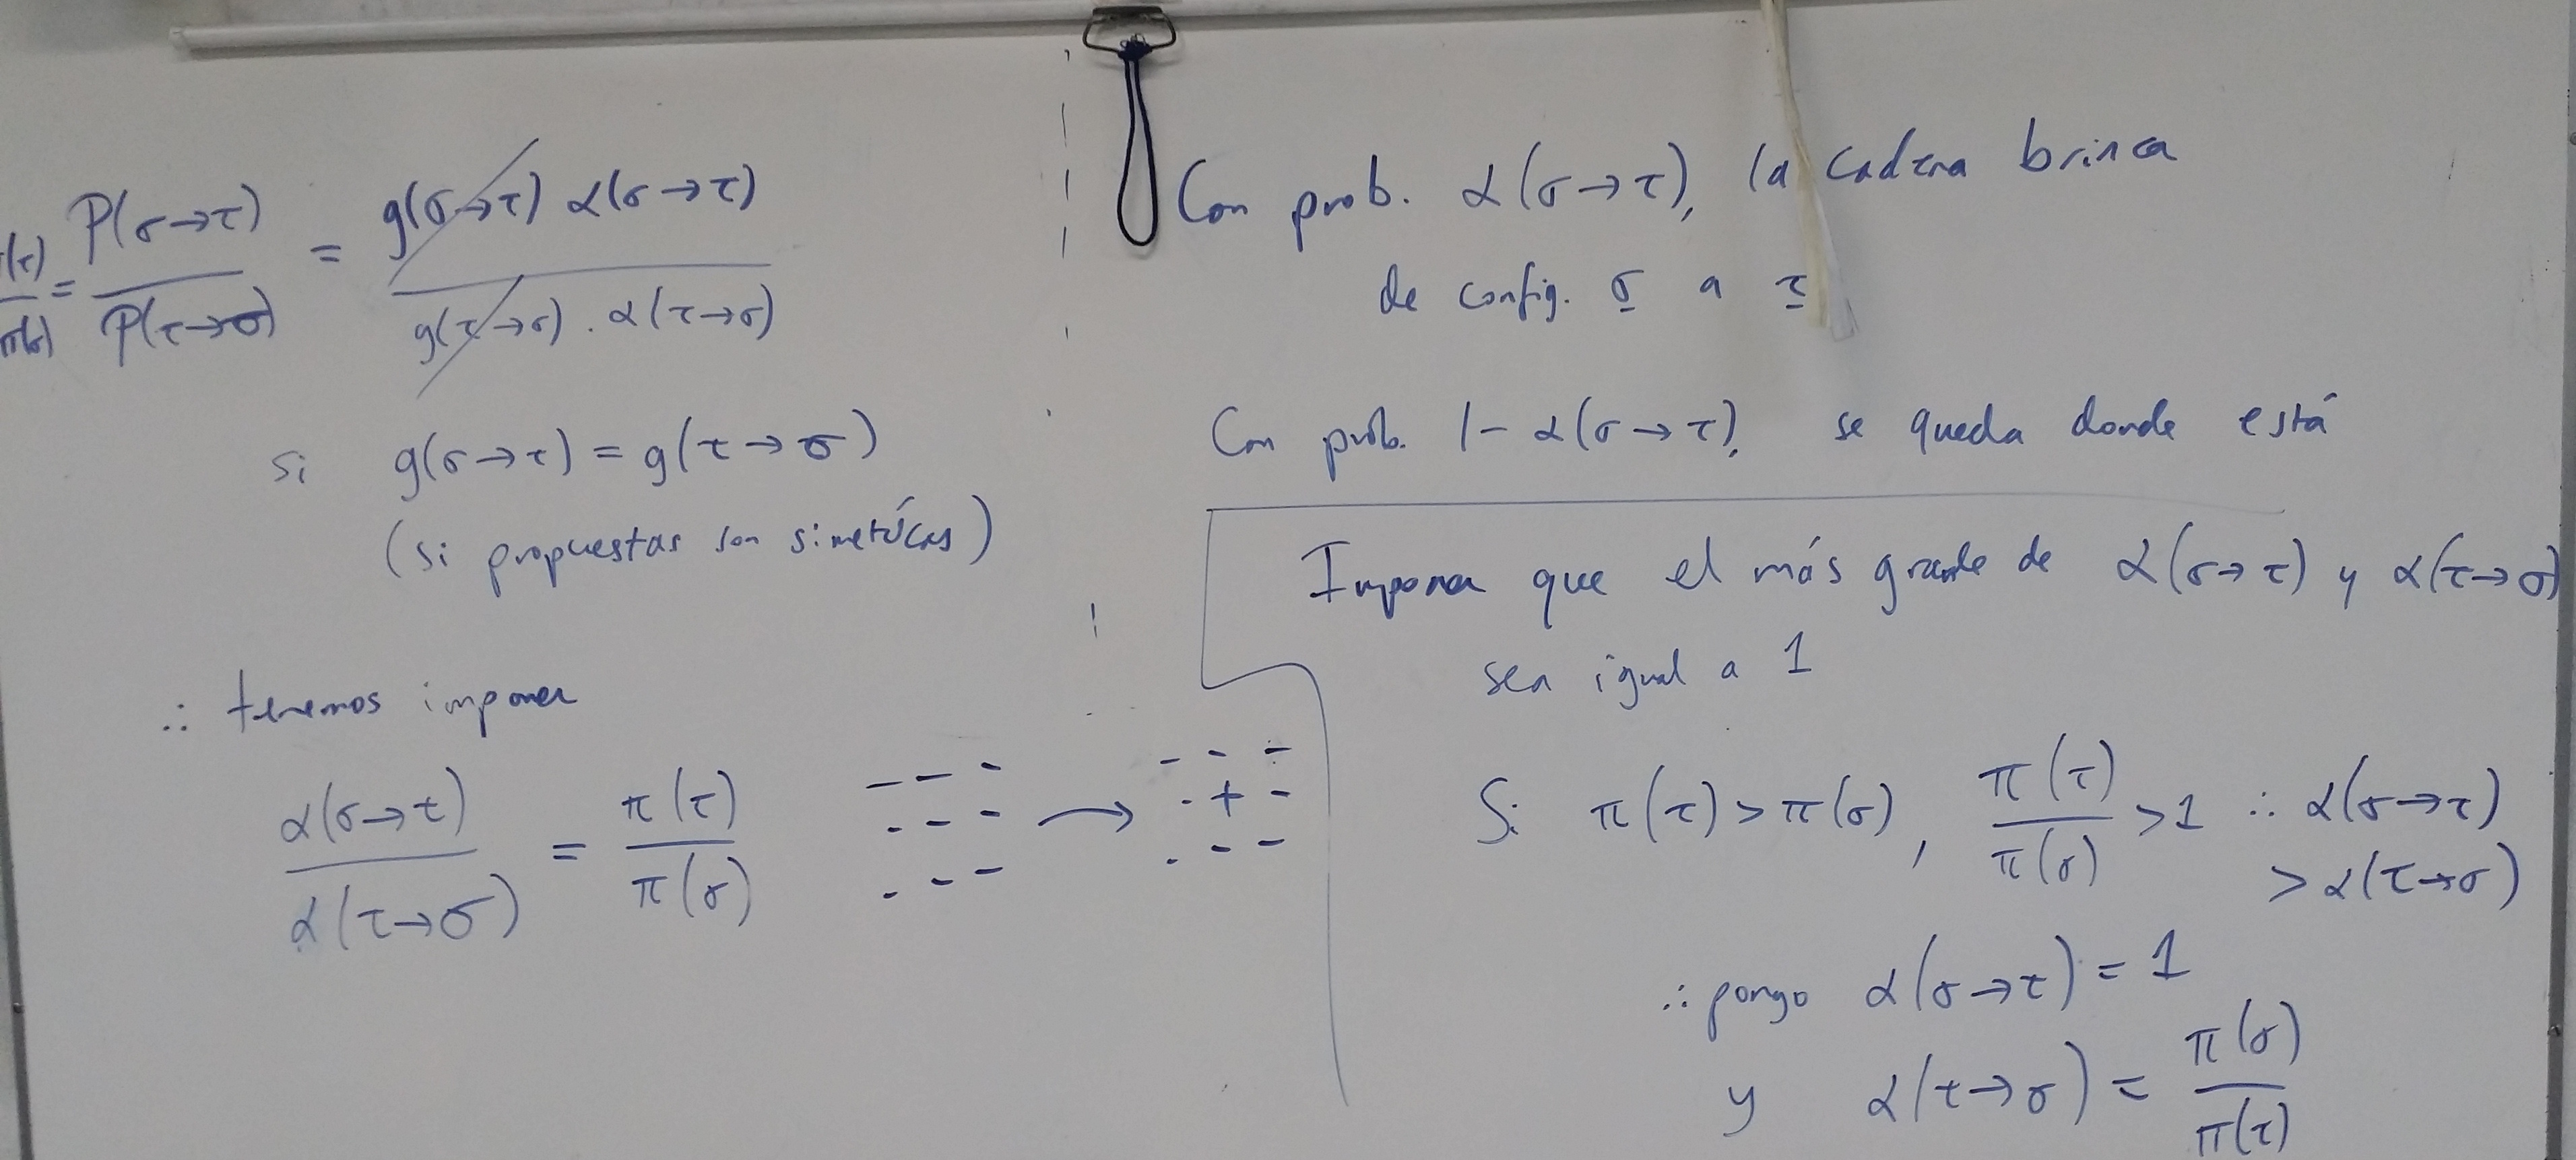 π(τ)/π(σ) = P(σ→τ)/P(τ→σ) = g(σ→τ) α(σ→τ) / g(τ→σ) . α(τ→σ)
si g(σ→τ) = g(τ→σ)
(si propuestas son simétricas)
∴ tenemos imponer
α(σ→τ)/α(τ→σ) = π(τ)/π(σ)
- - - - - -
- - - → - + -
- - - - - -
Con prob. α(σ→τ), la cadena brinca
de config. σ a τ
Con prob. 1 - α(σ→τ), se queda donde está
Imponer que el más grande de α(σ→τ) y α(τ→σ)
sea igual a 1
Si π(τ) > π(σ), π(τ)/π(σ) > 1 ∴ α(σ→τ)
> α(τ→σ)
∴ pongo α(σ→τ) = 1
y α(τ→σ) = π(σ)/π(τ)